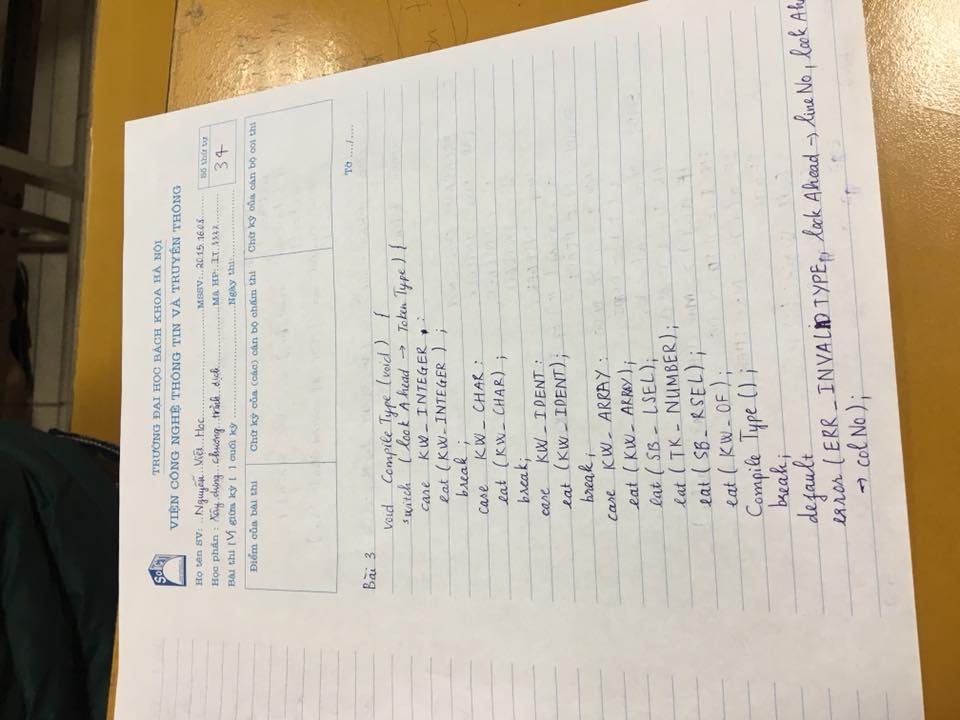 SoICT
TRƯỜNG ĐẠI HỌC BÁCH KHOA HÀ NỘI
VIỆN CÔNG NGHỆ THÔNG TIN VÀ TRUYỀN THÔNG
Họ tên SV: Nguyễn Viết Học MSSV: 20151608
Học phần: Xây dựng chương trình dịch Mã HP: IT
Bài thi [V] giữa kỳ [ ] cuối kỳ Ngày thi:
Số thứ tự
34
Điểm của bài thi Chữ ký của (các) cán bộ chấm thi Chữ ký của cán bộ coi thi
Tờ ..../....
Bài 3
void Compile Type (void) {
switch (look Ahead → Token Type) {
case KW_INTEGER :
eat (KW_INTEGER) ;
break ;
case KW_CHAR :
eat (KW_CHAR) ;
break;
case KW_IDENT :
eat (KW_IDENT);
break;
case KW_ARRAY :
eat (KW_ARRAY);
eat (SB_LSEL);
eat (TK_NUMBER);
eat (SB_RSEL);
eat (KW_OF);
Compile Type ();
break;
default
error (ERR_INVALID TYPE, look Ahead → line No, look Ah
→ col No);